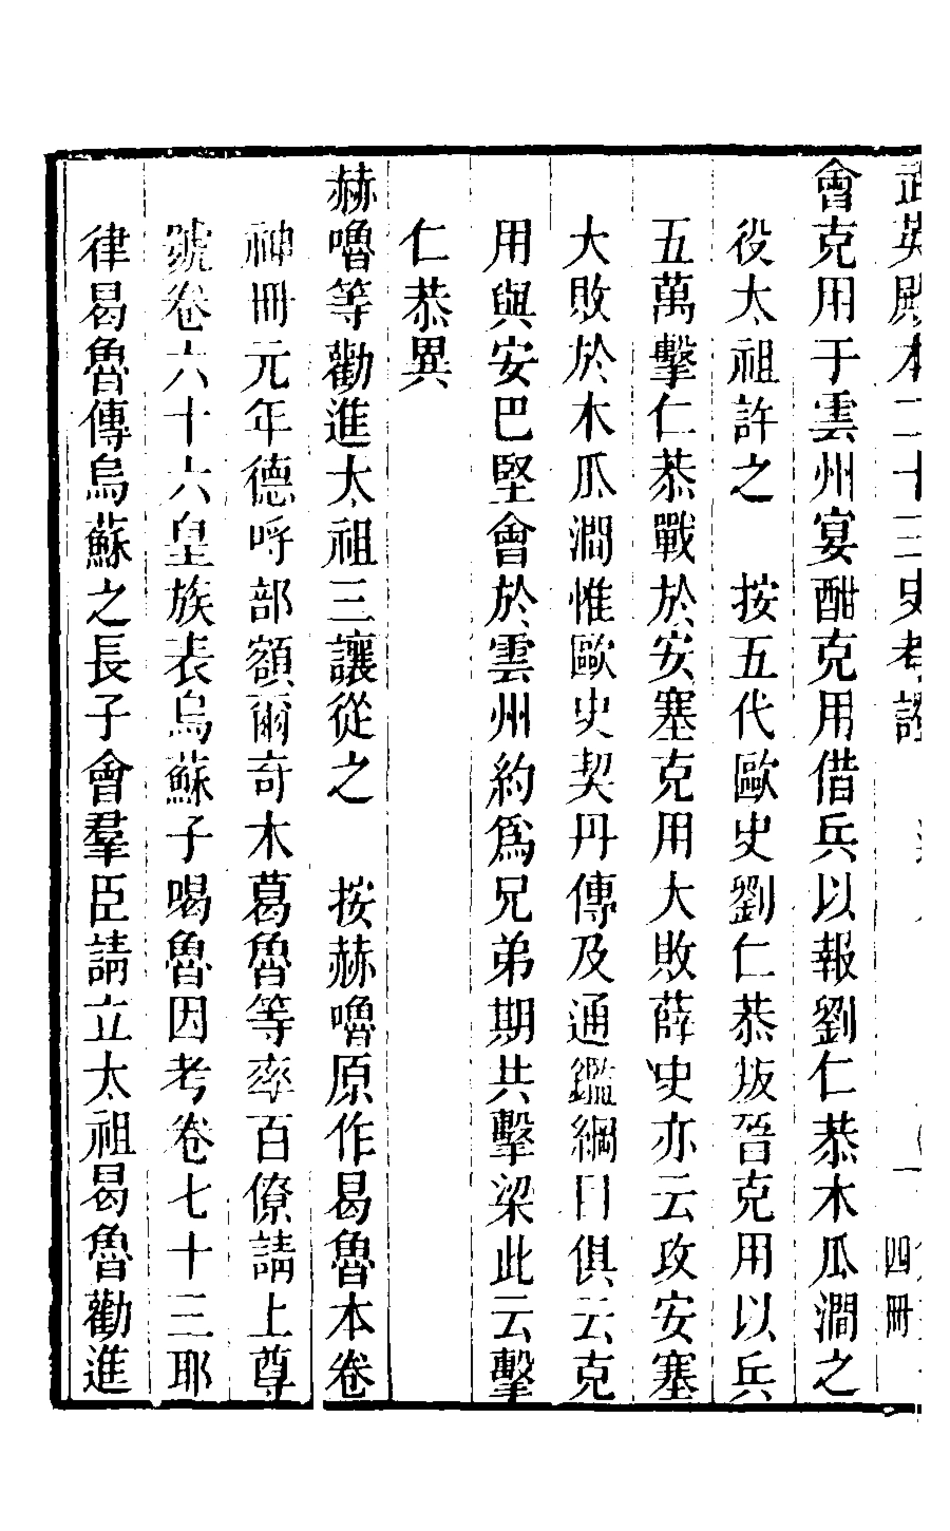 武英殿本二十三史考證 四冊
會克用于雲州宴酣克用借兵以報劉仁恭木瓜澗之
役太祖許之 按五代歐史劉仁恭叛晉克用以兵
五萬擊仁恭戰於安塞克用大敗薛史亦云攻安塞
大敗於木瓜澗惟歐史契丹傳及通鑑綱目俱云克
用與安巴堅會於雲州約爲兄弟期共擊梁此云擊
仁恭異
赫嚕等勸進太祖三讓從之 按赫嚕原作曷魯本卷
神冊元年德呼部額爾奇木葛魯等率百僚請上尊
號卷六十六皇族表烏蘇子喝魯因考卷七十三耶
律曷魯傳烏蘇之長子會羣臣請立太祖曷魯勸進